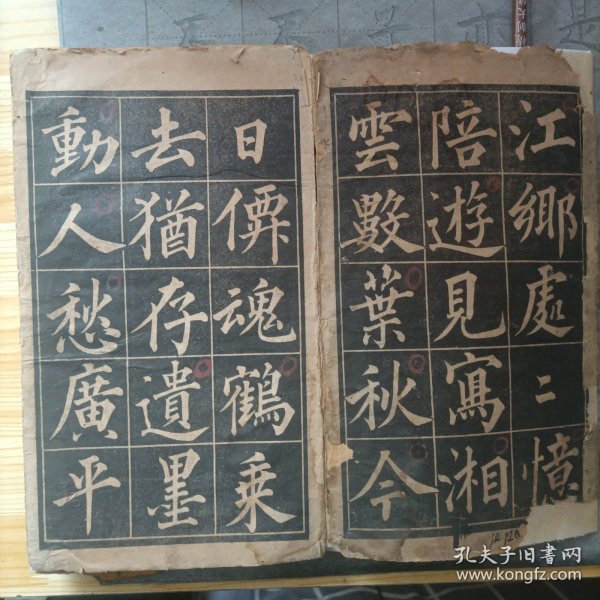 江鄉處二憶
陪遊見寫湘
雲數葉秋今
日僊魂鶴乗
去猶存遺墨
動人愁廣平
12.120
孔夫子旧书网
www.kongfz.com